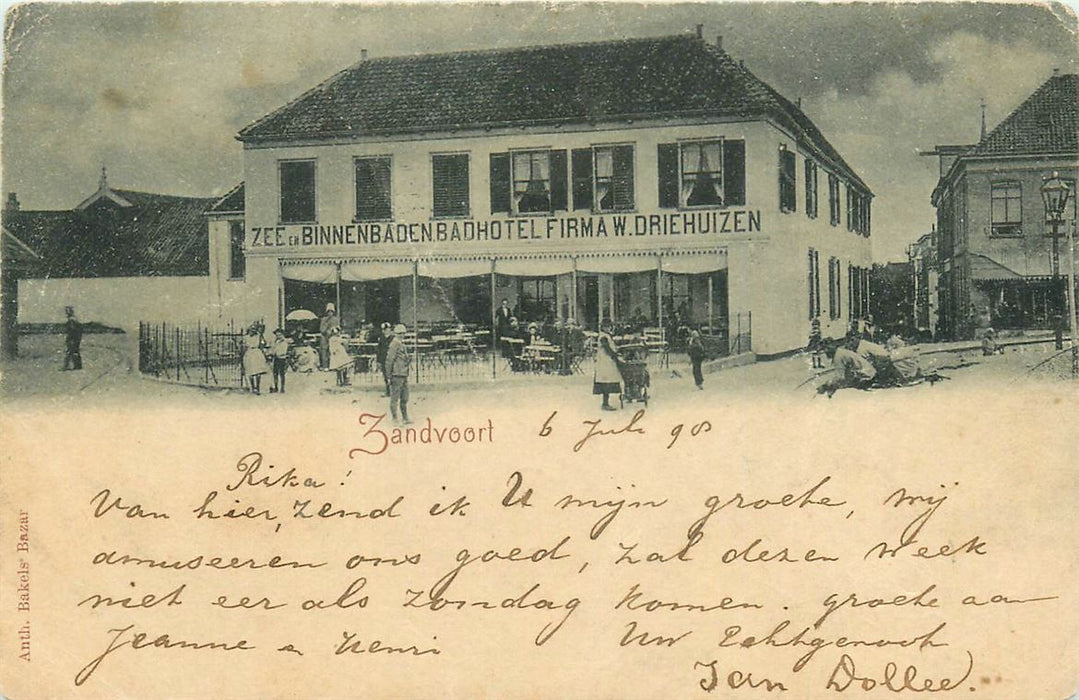 ZEE EN BINNENBADEN. BADHOTEL FIRMA W. DRIEHUIZEN
Zandvoort 6 Juli 98
Rika!
Van hier, zend ik U mijn groete, wij
amuseeren ons goed, zal dezen week
niet eer als zondag komen. groete aan
Jeanne en Henri Uw Echtgenoot
Jan Dollee.
Anth. Bakels' Bazar